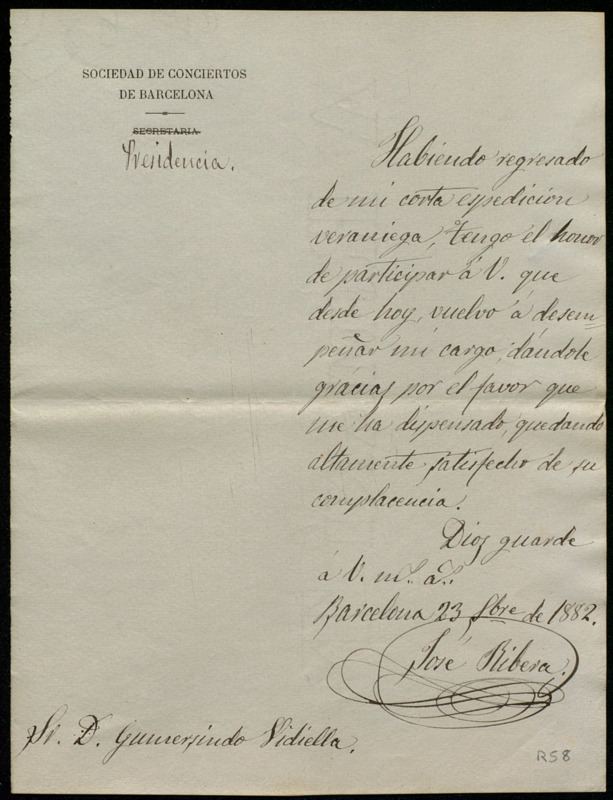 SOCIEDAD DE CONCIERTOS
DE BARCELONA
SECRETARIA
Presidencia.
Habiendo regresado
de mi corta espedicion
veraniega, tengo el honor
de participar á V. que
desde hoy, vuelvo á desem=
peñar mi cargo, dándole
grácias por el favor que
me ha dispensado, quedando
altamente satisfecho de su
complacencia.
Dios guarde
á V. m.s a.s
Barcelona 23 Sbre de 1882.
José Ribera.
Sr. D. Gumersindo Vidiella.
R58